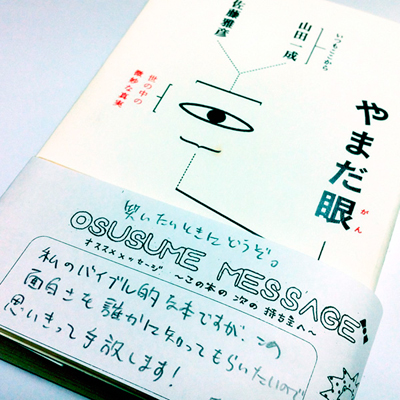 佐藤雅彦
山田一成
いつもここから
世の中の
微妙な真実
やまだ眼
がん
笑いたいときにどうぞ。
OSUSUME MESSAGE
オススメメッセージ 〜この本の次の持ち主へ〜
私のバイブル的な本ですが、この
面白さを誰かに知ってもらいたいので
思いきって手放します！